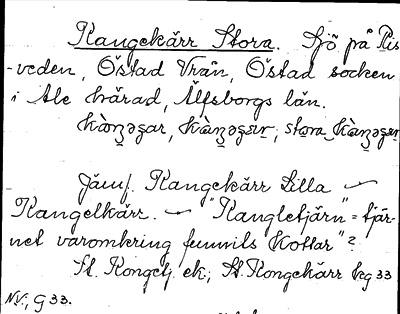 Kangekärr Stora. Sjö på Ris-
veden, Östad Vrån, Östad socken
i Ale härad, Älfsborgs län.
stora
Jämf. Kangekärr Lilla
Kangelkärr. "Kangletjärn" = tjär-
net varomkring funnits Kottar"?
St. Kongetj. ek; St. Kongekärr kg 33
NV, G 33.